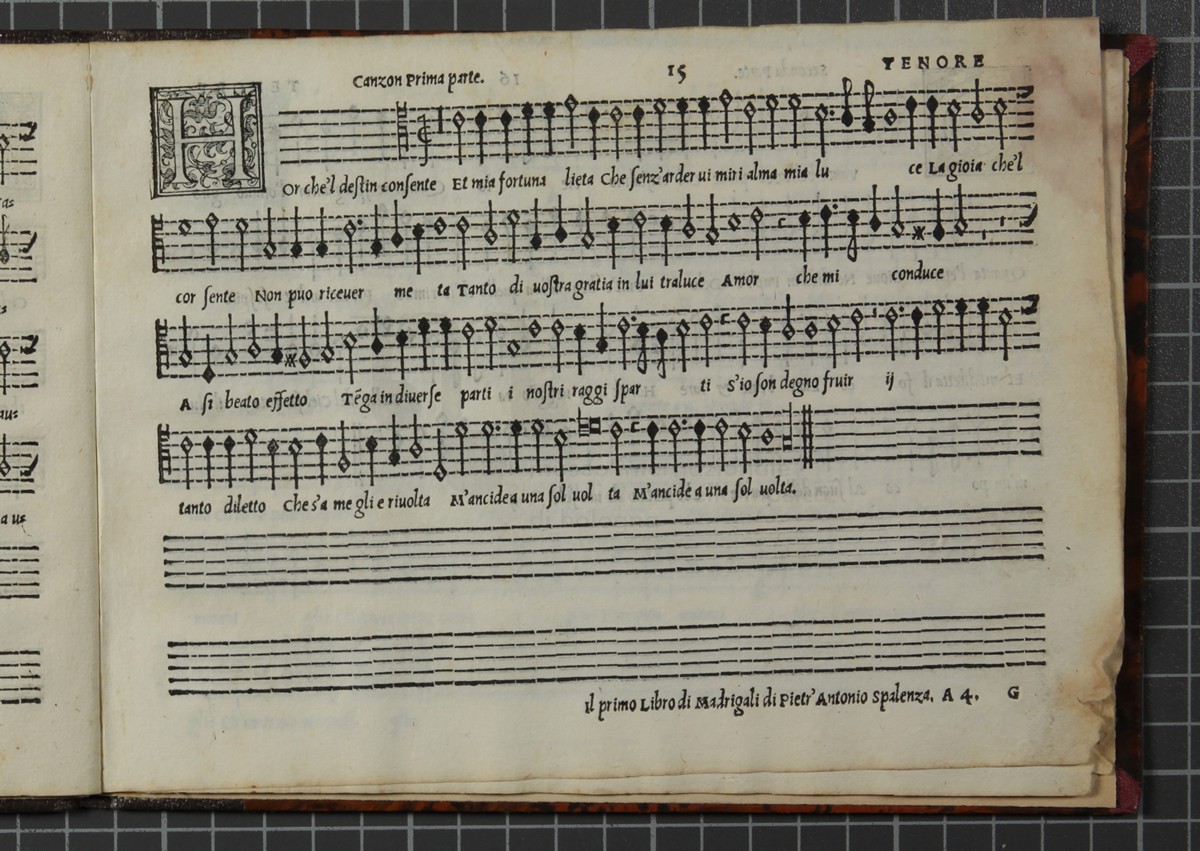 Canzon Prima parte. 15 TENORE
H
Or che'l destin consente Et mia fortuna lieta Che senz'arder ui miri alma mia lu ce La gioia che'l
cor sente Non puo riceuer me ta Tanto di uostra gratia in lui traluce Amor che mi conduce
A si beato effetto Tẽga in diuerse parti i nostri raggi spar ti S'io son degno fruir ij
tanto diletto Che s'a me gli e riuolta M'ancide a una sol uol ta M'ancide a una sol uolta.
Il primo Libro di Madrigali di Pietr'Antonio Spalenza. A 4. G